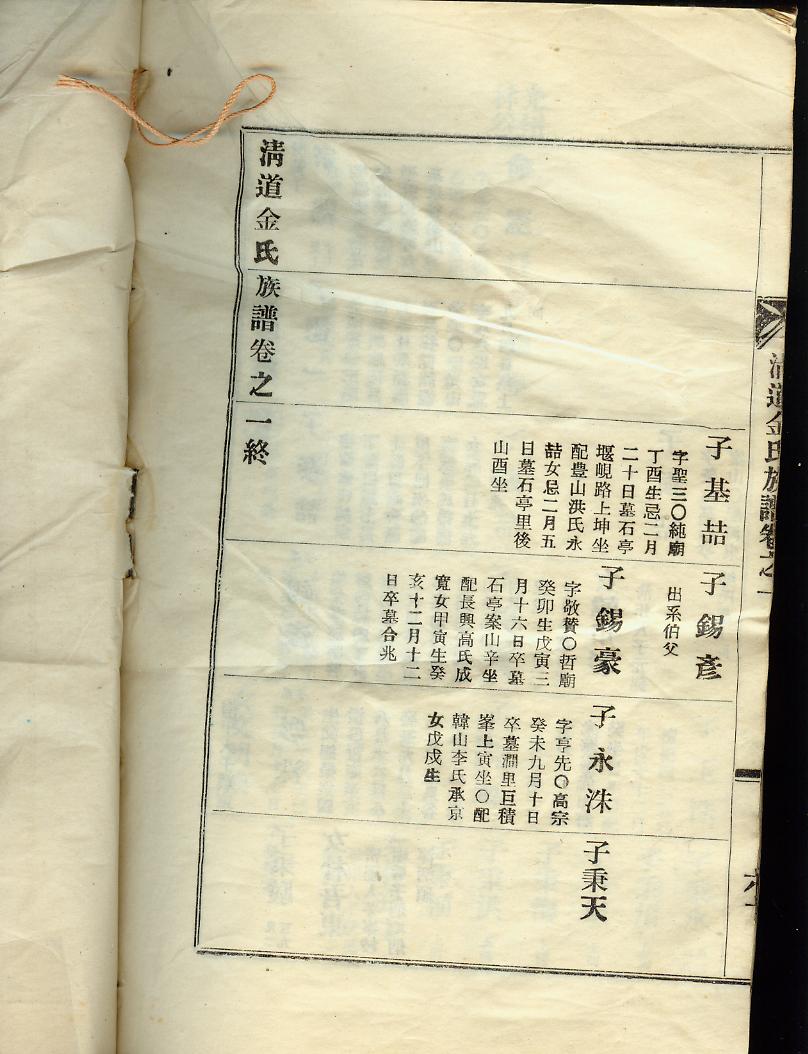 淸道金氏族譜卷之一
六十
子基喆
字聖三〇純廟
丁酉生忌二月
二十日墓石亭
堰峴路上坤坐
配豊山洪氏永
喆女忌二月五
日墓石亭里後
山酉坐
子錫彥
出系伯父
子錫豪
字敬贊〇哲廟
癸卯生戊寅三
月十六日卒墓
石亭案山辛坐
配長興高氏成
寬女甲寅生癸
亥十二月十二
日卒墓合兆
子永洙
字亨先〇高宗
癸未九月十日
卒墓澗里巨積
峯上寅坐〇配
韓山李氏承京
女戊戍生
子秉天
淸道金氏族譜卷之一終